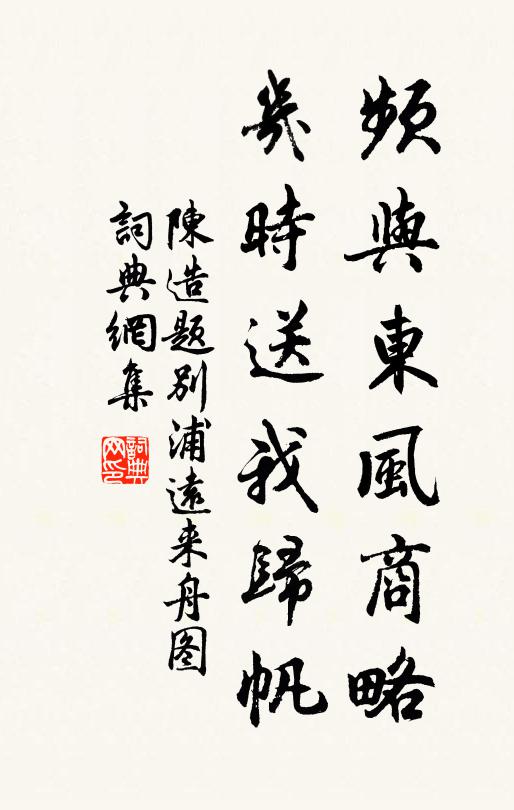 頻與東風商略
幾時送我歸帆
陳造題別浦遠来舟图
詞典網集
詞典网印